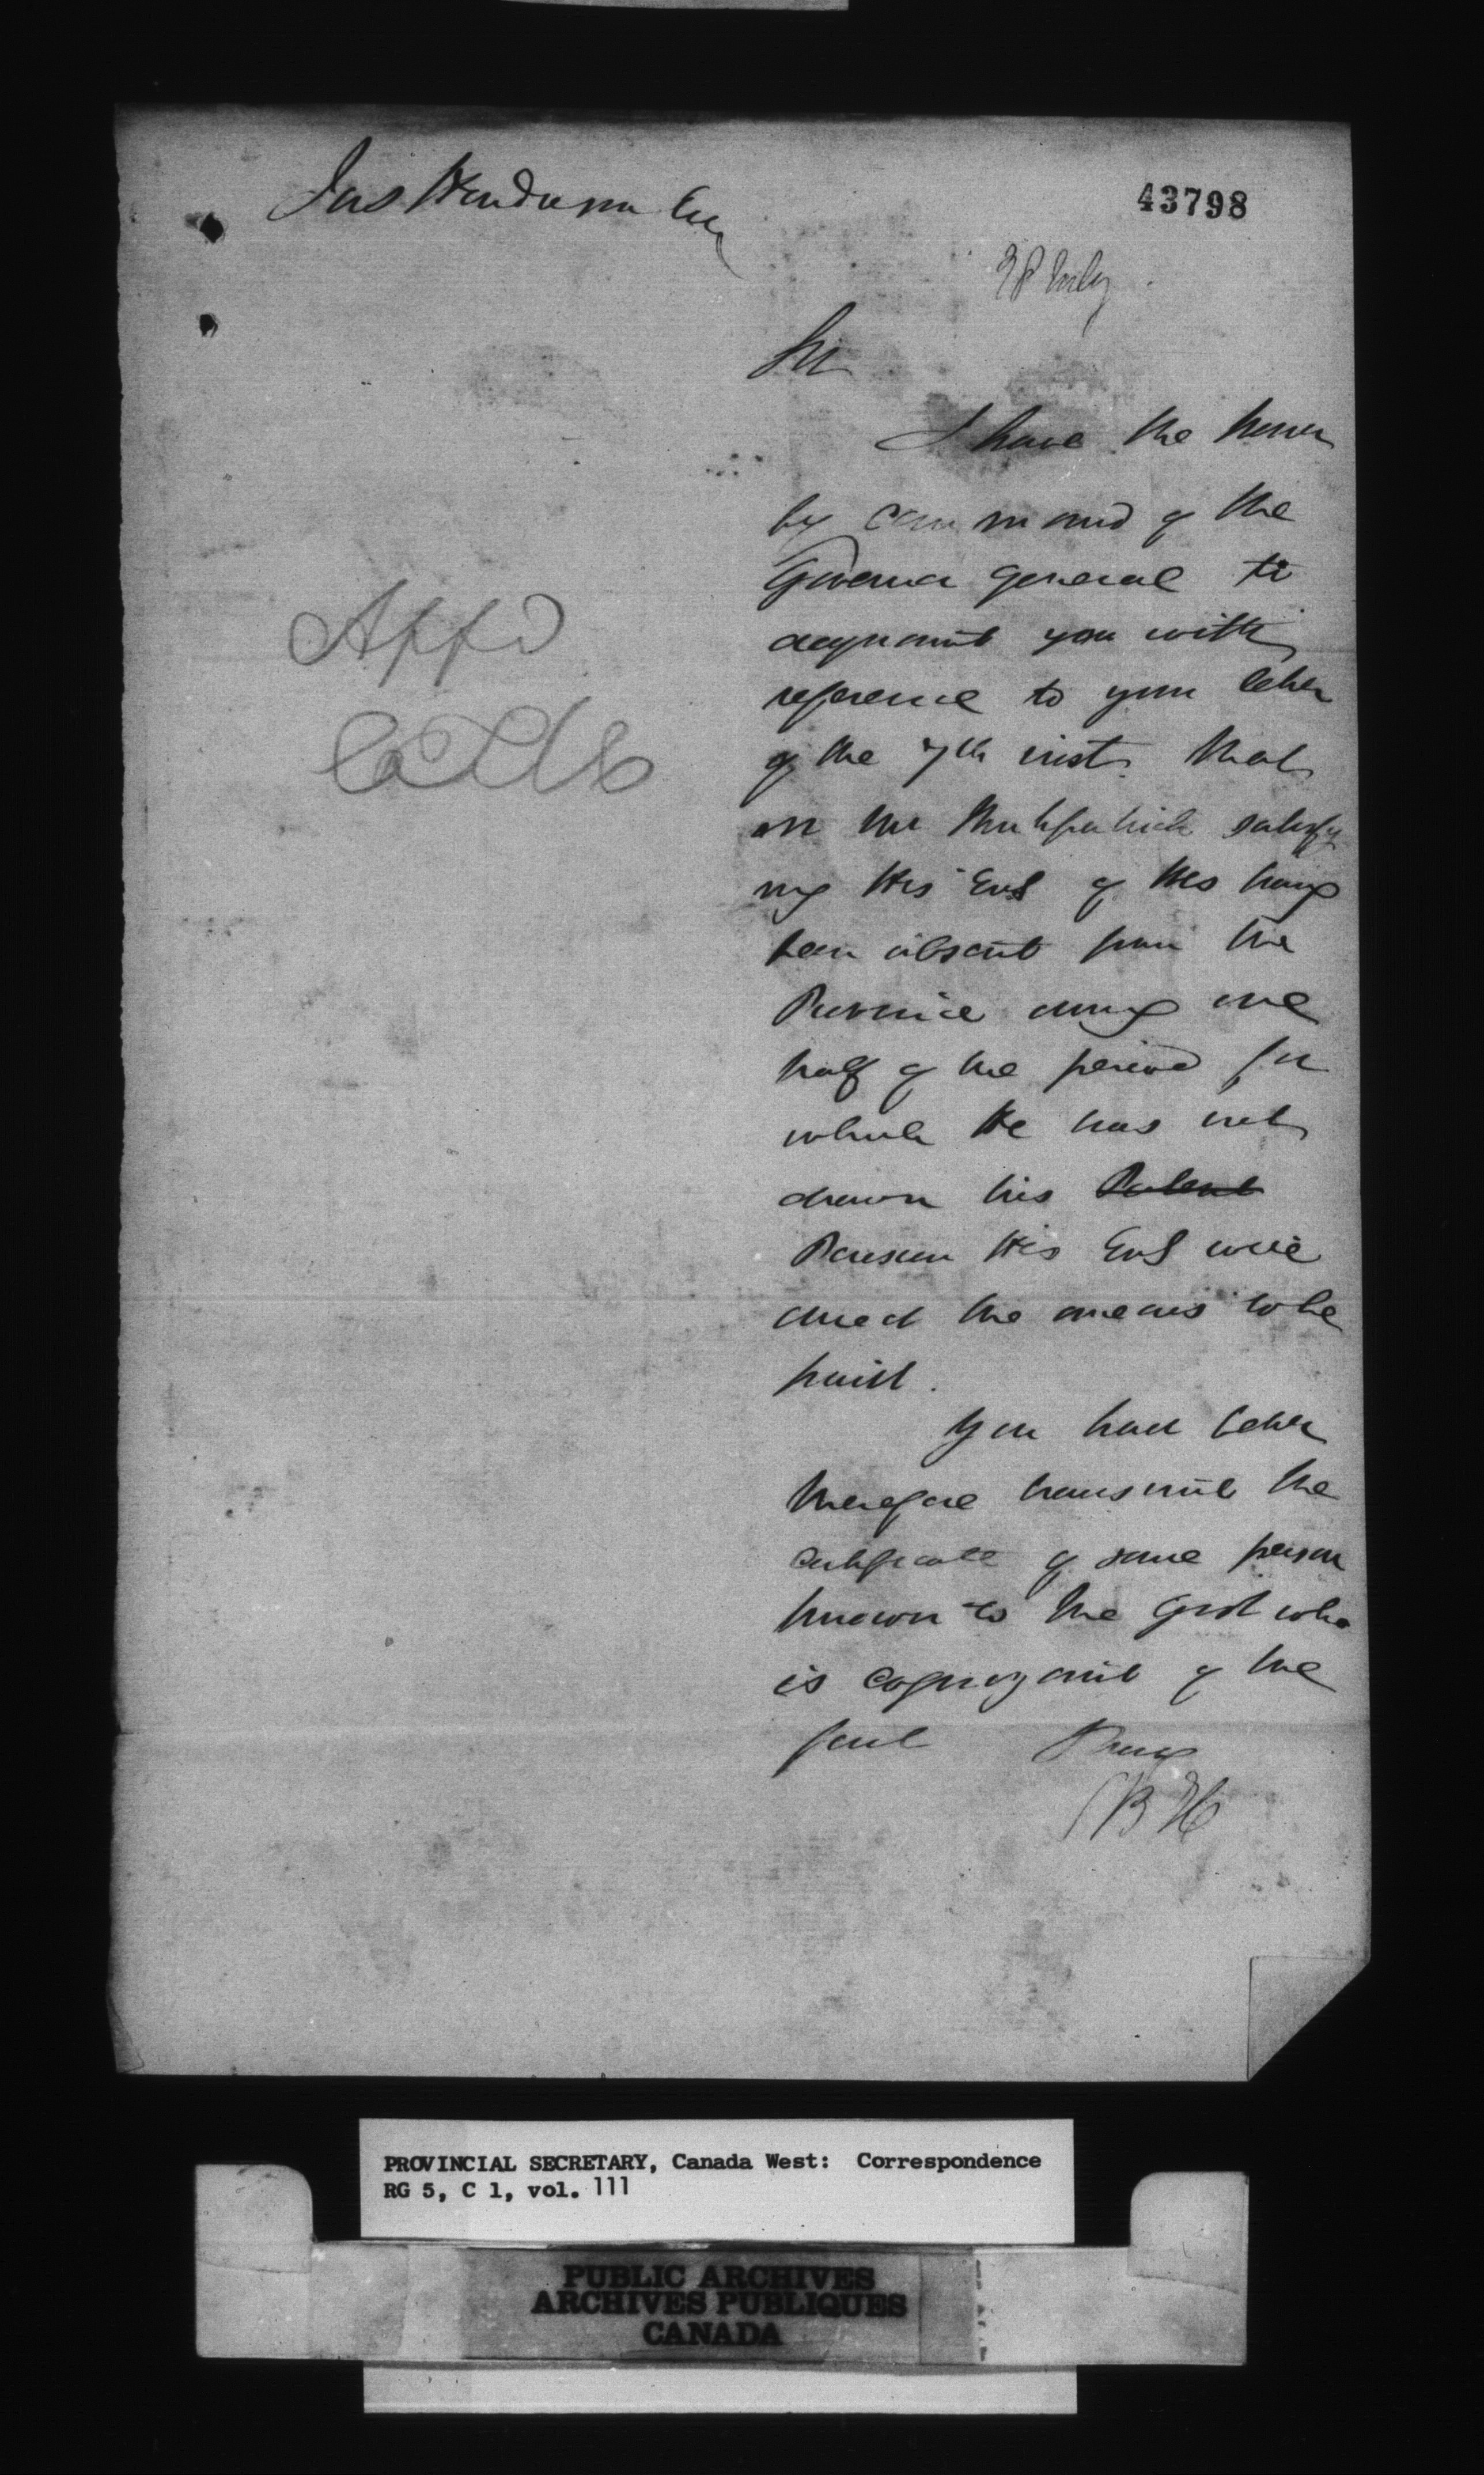 Jas Henderson Esq
43798
28 July
Sir
I have the honor
by command of the
Governor General to
acquaint you with
reference to your letter
of the 7th inst. that
on Mr satisfy
ing His Exc of His having
been absent from the
Province during one
half of the period for
which He has not
drawn his Patent
Pension His Exc will
direct the means to be
paid.
You had better
therefore transmit the
certificate of some person
known to the Govt who
is cognizant of the
fact
Appd
PROVINCIAL SECRETARY, Canada West: Correspondence
RG 5, C 1, vol. 111
PUBLIC ARCHIVES
ARCHIVES PUBLIQUES
CANADA